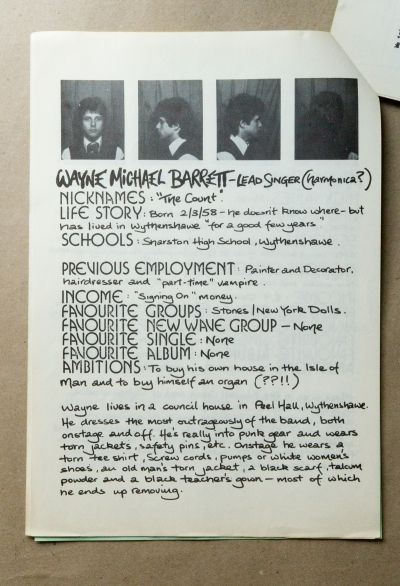 WAYNE MICHAEL BARRETT - LEAD SINGER (harmonica?)
NICKNAMES : "The Count"
LIFE STORY : Born 2/3/58 - he doesn't know where - but
has lived in Wythenshawe "for a good few years"
SCHOOLS : Sharston High School, Wythenshawe.
PREVIOUS EMPLOYMENT : Painter and Decorator,
hairdresser and "part-time" vampire.
INCOME : "Signing On" money.
FAVOURITE GROUPS : Stones / New York Dolls.
FAVOURITE NEW WAVE GROUP - None
FAVOURITE SINGLE : None
FAVOURITE ALBUM : None
AMBITIONS : To buy his own house in the Isle of
Man and to buy himself an organ (??!!)
Wayne lives in a council house in Peel Hall, Wythenshawe.
He dresses the most outrageously of the band, both
onstage and off. He's really into punk gear and wears
torn jackets, safety pins, etc. Onstage he wears a
torn tee shirt, screw cords, pumps or white women's
shoes, an old man's torn jacket, a black scarf, talcum
powder and a black teacher's gown - most of which
he ends up removing.